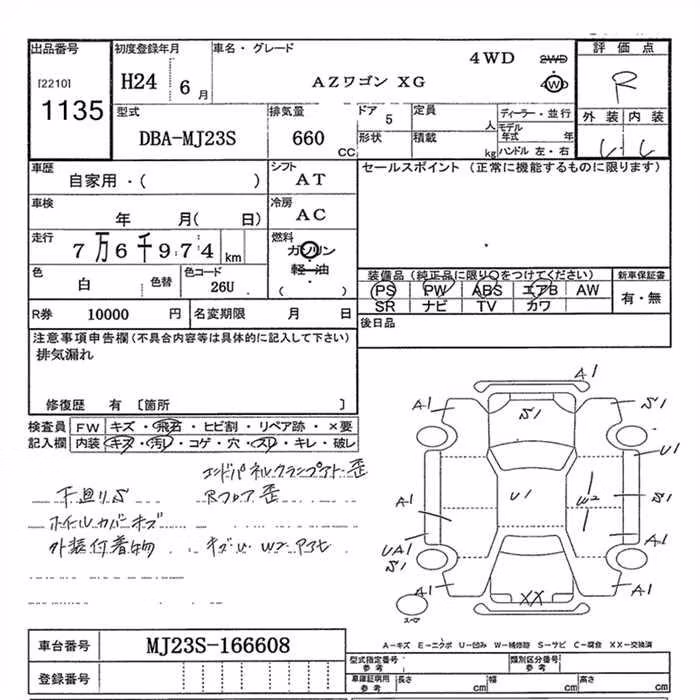 出品番号
[2210]
1135
初度登録年月
H24 6月
車名・グレード
AZワゴン XG
4WD
2WD
4WD
評価点
R
外装 内装
型式
DBA-MJ23S
排気量
660 CC
ドア 5
形状
定員 人
積載 kg
ディーラー・並行
モデル年式 年
ハンドル 左・右
車歴
自家用・( )
シフト
AT
セールスポイント (正常に機能するものに限ります)
車検
年 月( 日)
冷房
AC
走行
7万6千974km
燃料
ガソリン
軽油
( )
色
白
色替
色コード
26U
装備品 (純正品に限り○をつけてください)
PS PW ABS エアB AW
SR ナビ TV カワ
新車保証書
有・無
R券 10000 円
名変期限 月 日
後日品
注意事項申告欄(不具合内容等は具体的に記入して下さい)
排気漏れ
修復歴 有 〔箇所 〕
検査員記入欄
FW キズ・飛石・ヒビ割・リペア跡・×要
内装 キズ・汚れ・コゲ・穴・スリ・キレ・破レ
エンドパネルクランプアト・歪
下廻りS Rフロア歪
ホイールカバーキズ
外装付着物 キズU W2 アセ
A1
A1 S1 S1
U1
A1 U1 W2 S1
UA1 A1
S1
A1 XX A1
スペア
A-キズ E-エクボ U-凹み W-補修跡 S-サビ C-腐食 XX-交換済
車台番号 MJ23S-166608
登録番号
型式指定番号 参考
類別区分番号 参考
車庫証明用 参考
長さ cm
幅 cm
高さ cm